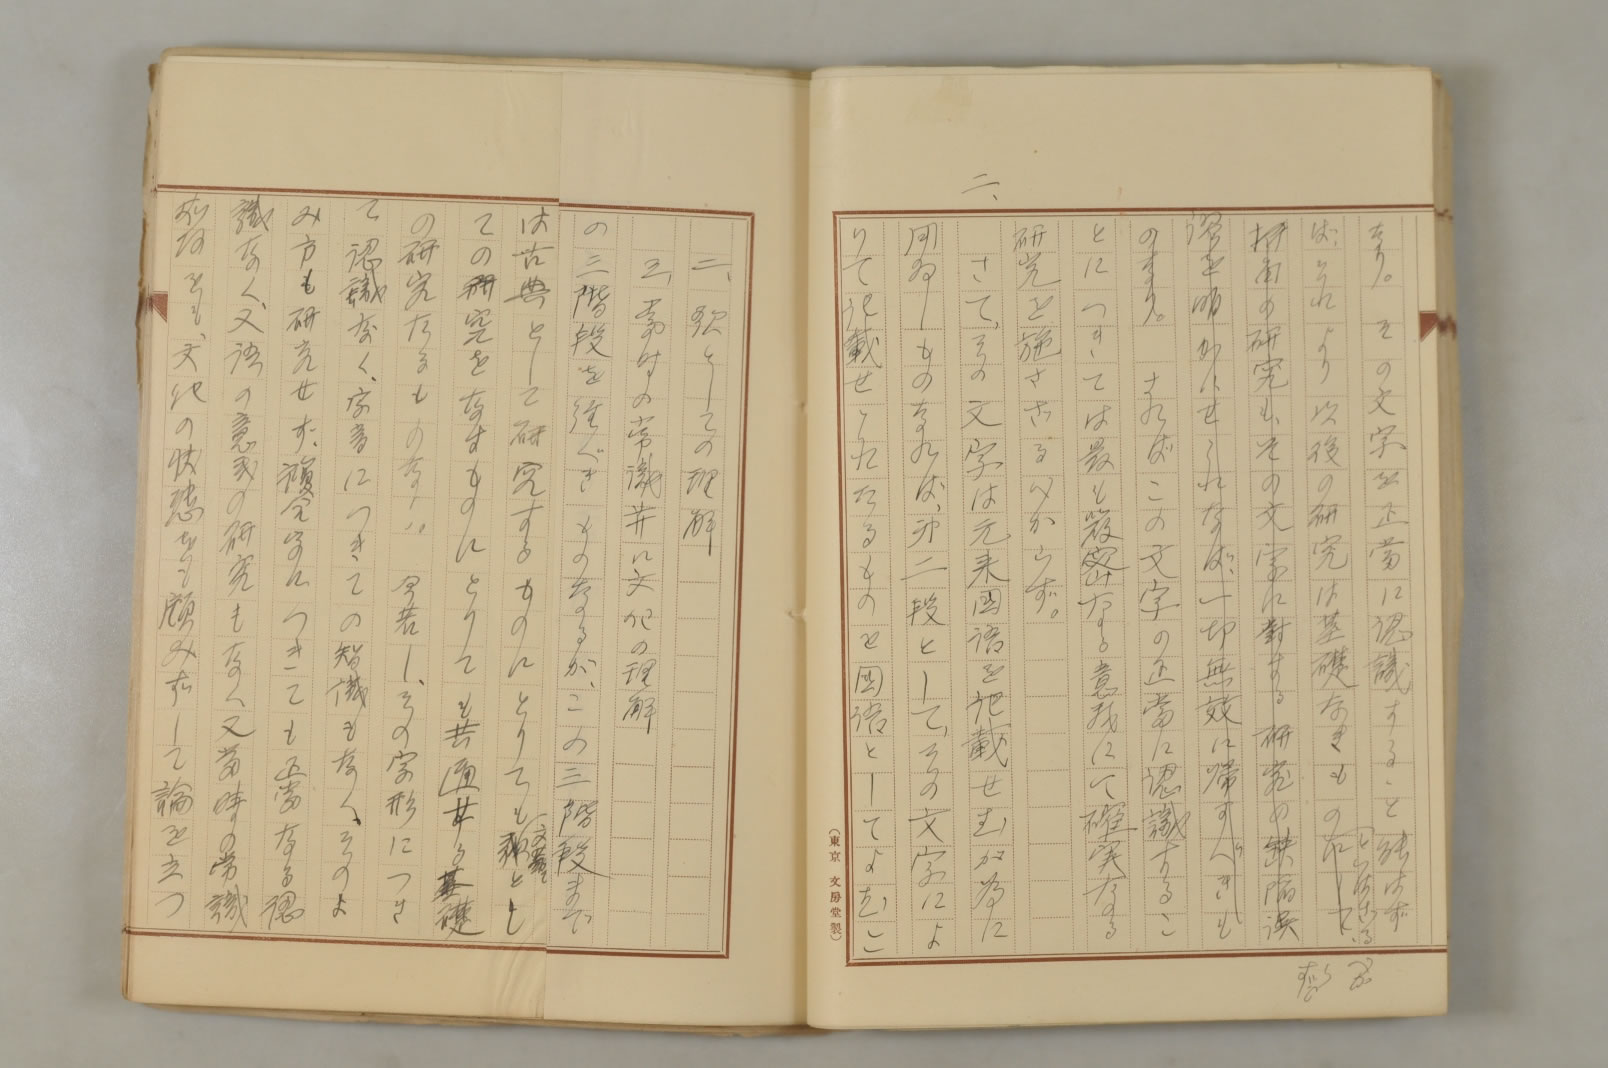 なり。その文字を正当に認識すること能はず
ば、それより以後の研究は基礎なきものにして、
といはざる
べからず
折角の研究も、その文字に対する研究の缺陥誤
謬を明かにせられなば、一切無效に帰すべきも
のなり。さればこの文字の正当に認識するこ
とにつきては最も厳密なる意義にて確実なる
研究を施さざるべからず。
二、
さて、その文字は元来国語を記載せむが為に
用ゐしものなれば、第二段として、その文字によ
りて記載せられたるものを国語としてよむこ
(東京 文房堂製)
二、歌としての理解
三、当時の常識並に文化の理解
の三階段を経べきものなるが、この三階段まで
は古典として研究するものにとりても
(文芸
とし
ての研究をなすものにとりても共通せる基礎
の研究たるものなり。今若し、その字形につき
て認識なく、字音につきての智識もなく、そのよ
み方も研究せず、複合字につきても正当なる認
識なく、又語の意義の研究もなく又当時の常識
をも、文化の状態をも顧みずして論を立つ